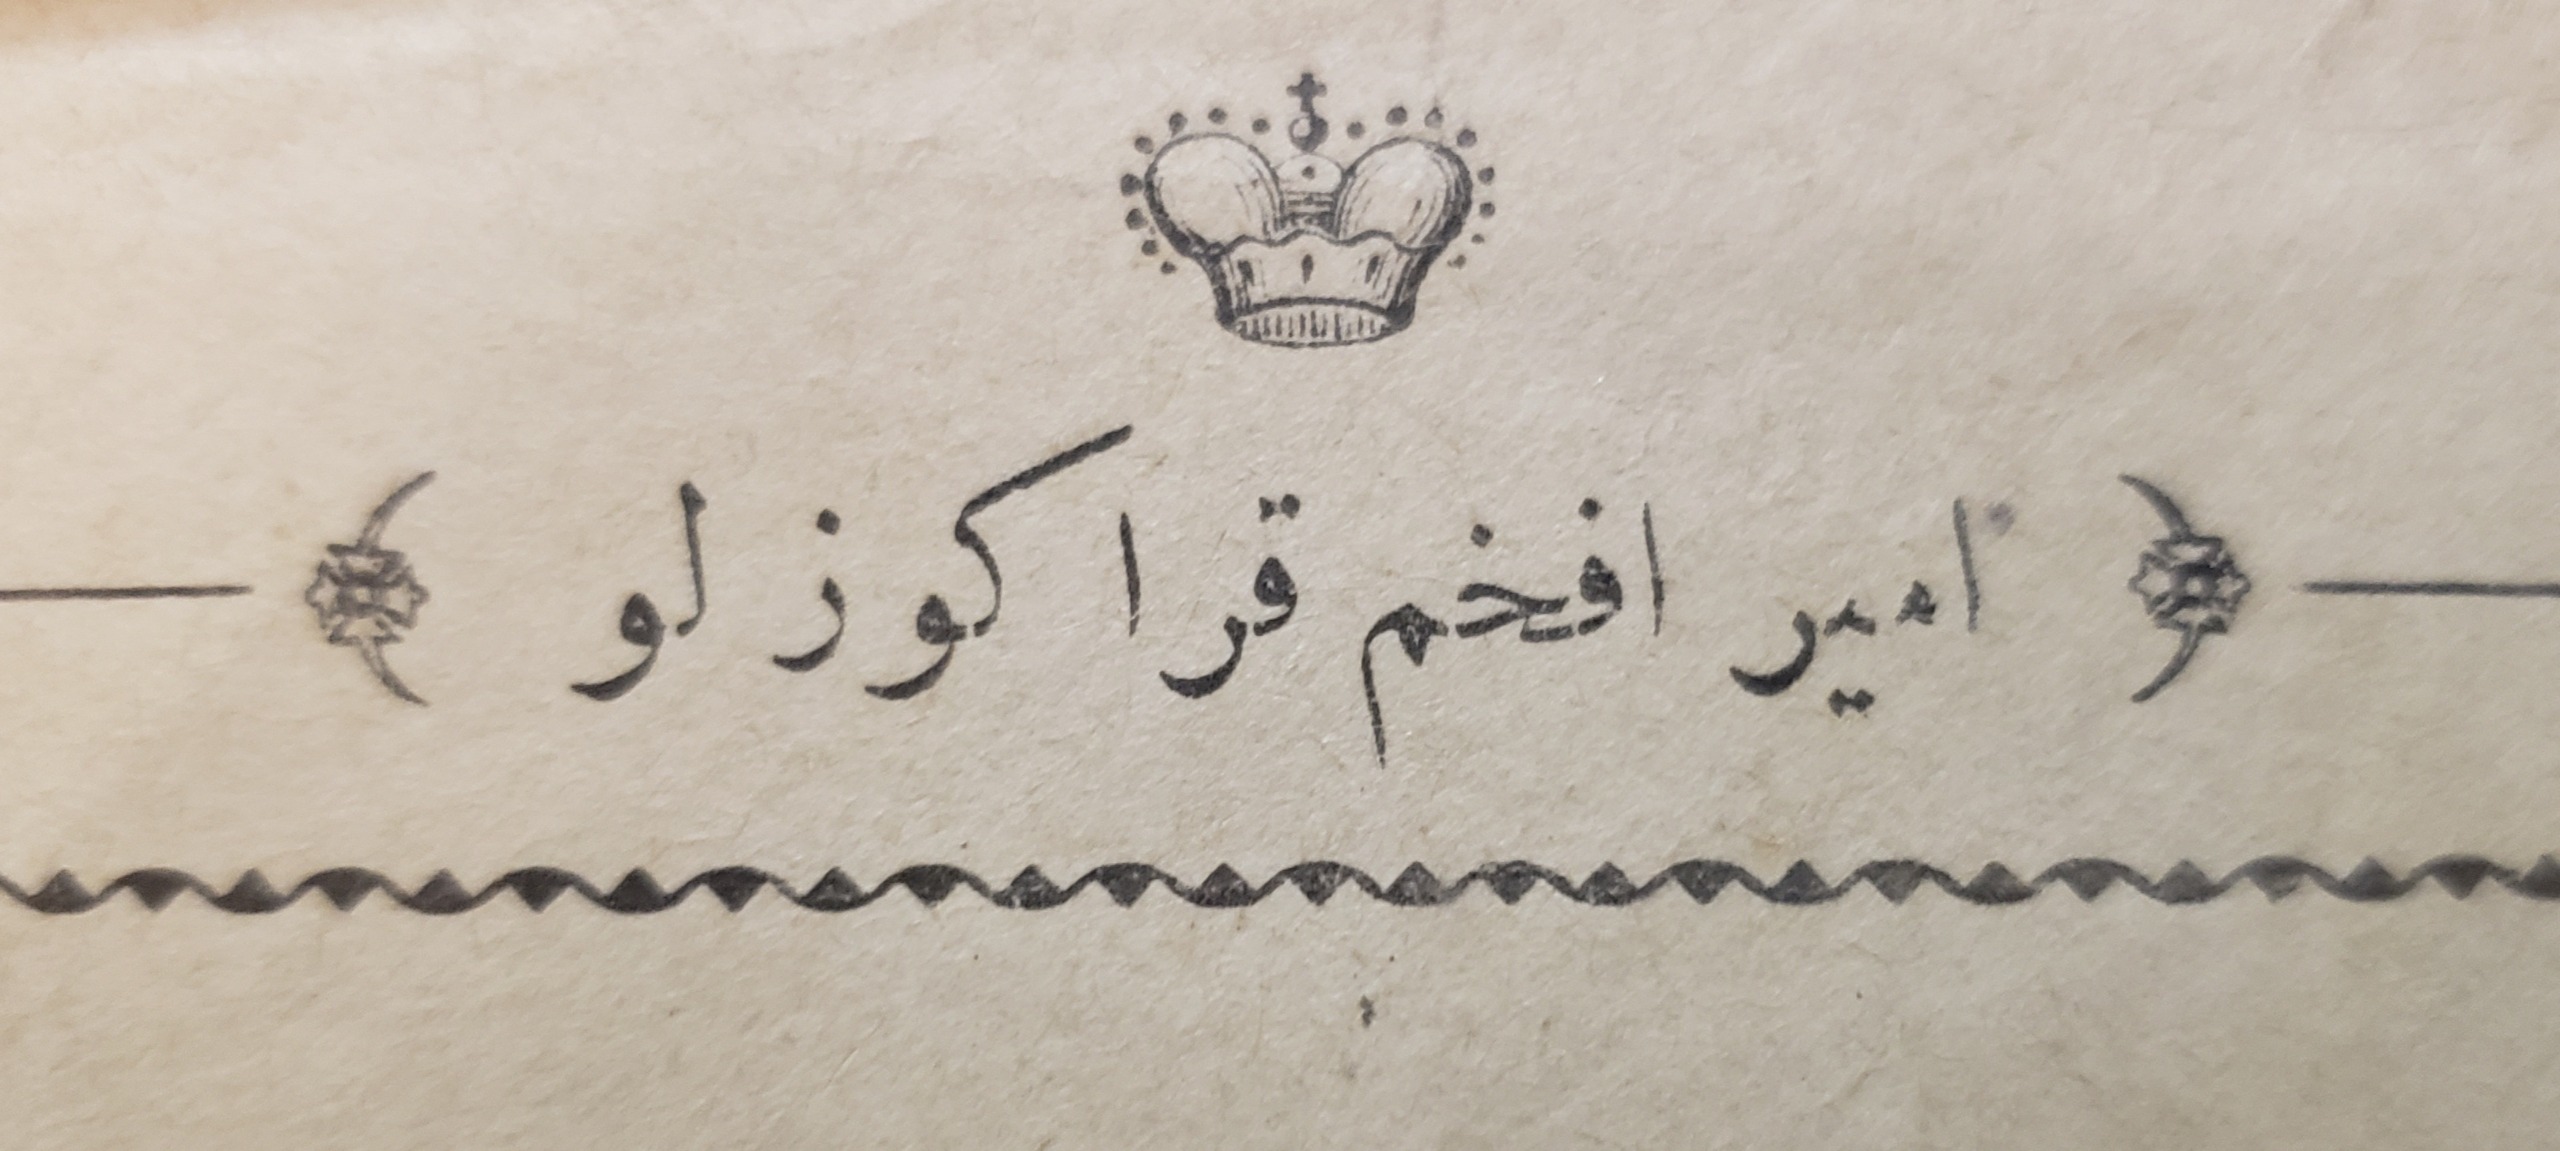 ﴿ امیر افخم قرا کوزلو ﴾